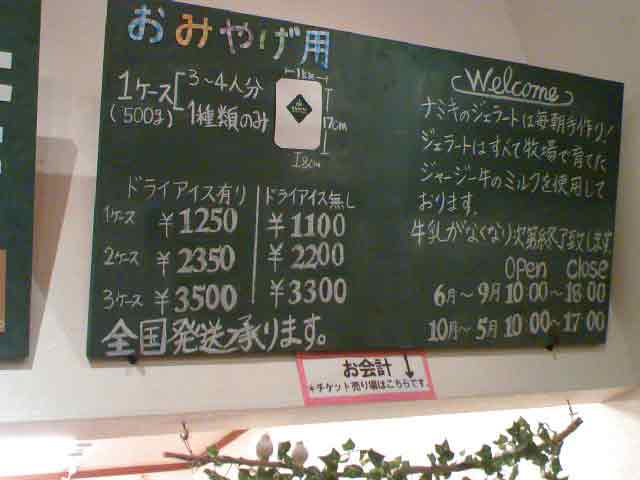 おみやげ用
1ケース
(500g)
3~4人分
1種類のみ
17cm
ドライアイス有り ドライアイス無し
1ケース ¥1250 ¥1100
2ケース ¥2350 ¥2200
3ケース ¥3500 ¥3300
全国発送承ります。
Welcome
ナミキのジェラートは毎朝手作り!
ジェラートはすべて牧場で育てた
ジャージー牛のミルクを使用して
おります。
牛乳がなくなり次第終了致します
OPEN CLOSE
6月~9月 10:00~18:00
10月~5月 10:00~17:00
お会計 ↓
*チケット売り場はこちらです。